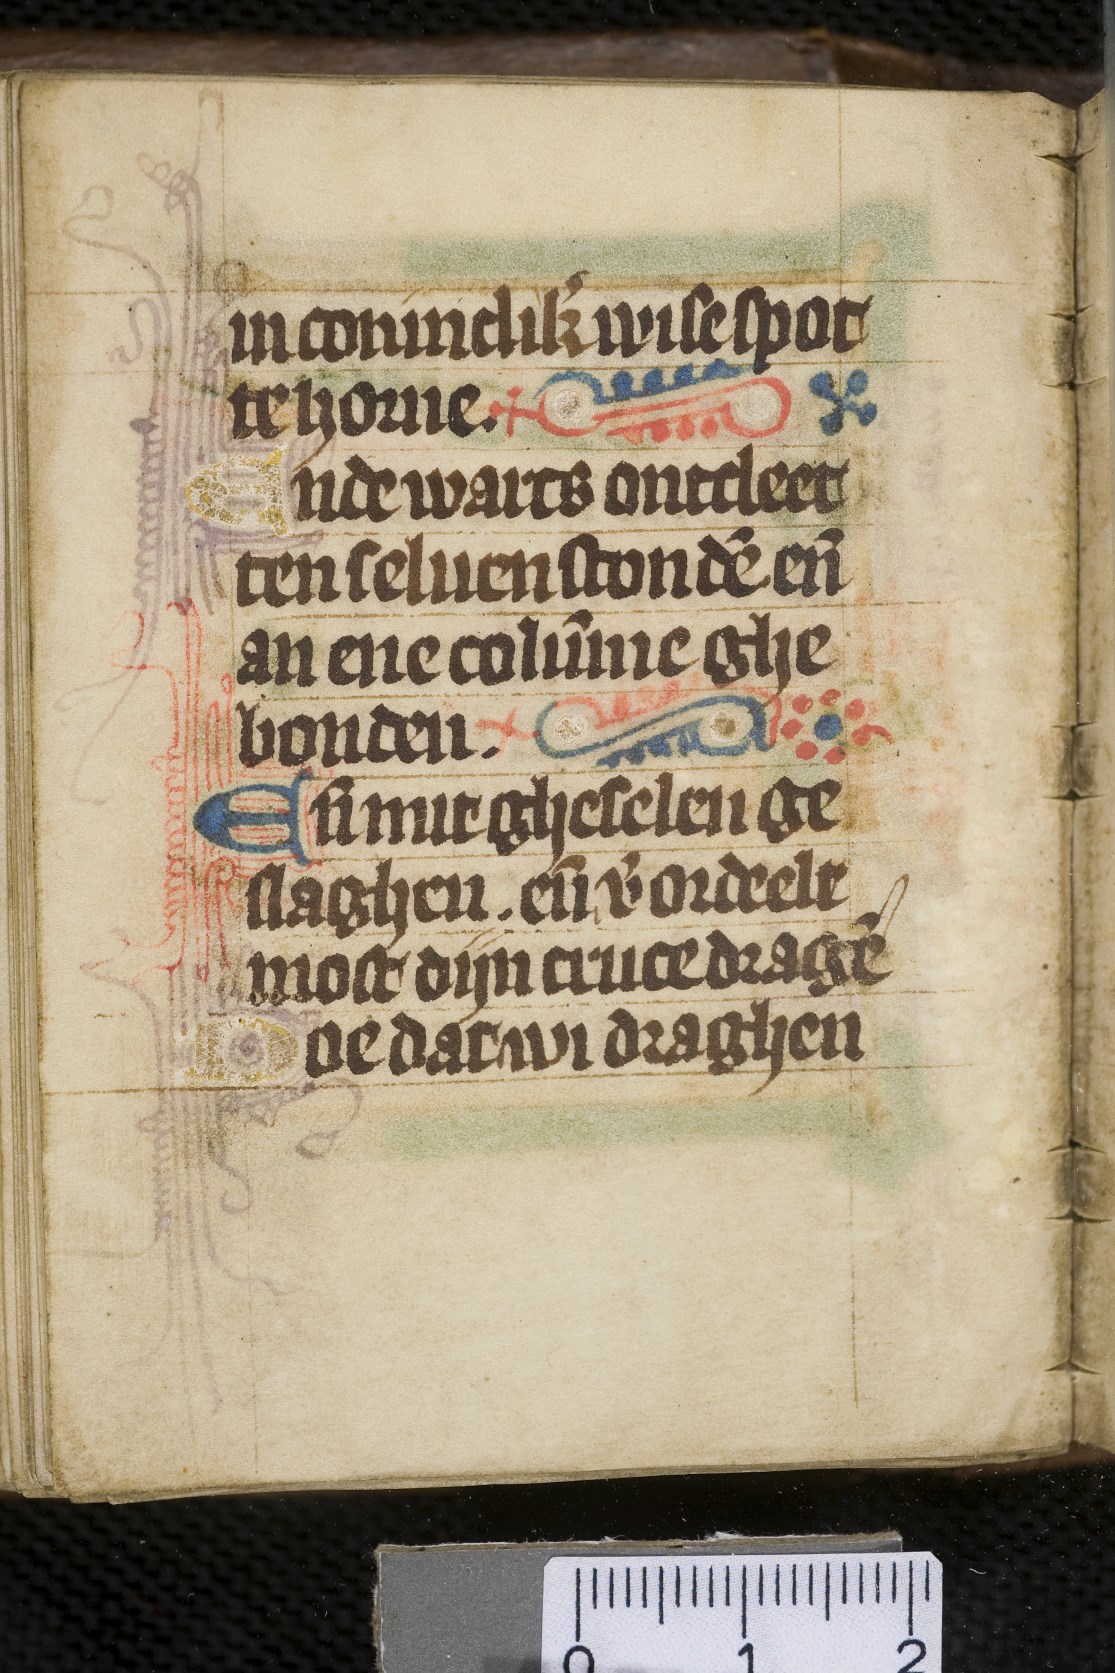 in coninclik̕ wise spot
te horne.
Ende warts ontcleet
ten seluen stondē. en̄
an ene colūme ghe
bonden.
En̄ mit gheselen ge
slaghen. en̄ v̕ordeelt
most dijn cruce dragē
Doe dat wi draghen
0 1 2